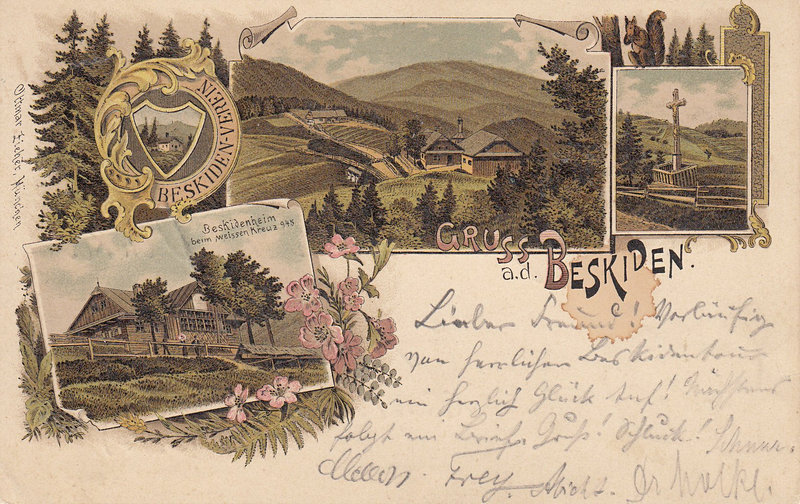 Ottmar Zieher, München
BESKIDEN-VEREIN
Beskidenheim
beim weissen Kreuz 948
GRUSS
a.d. BESKIDEN.
Lieber Freund! Vorläufig
von herrlichen Beskidentour
ein herzlich Glück Auf! Nächstens
folgt ein Brief. Gruß! Schluck!
Frey.